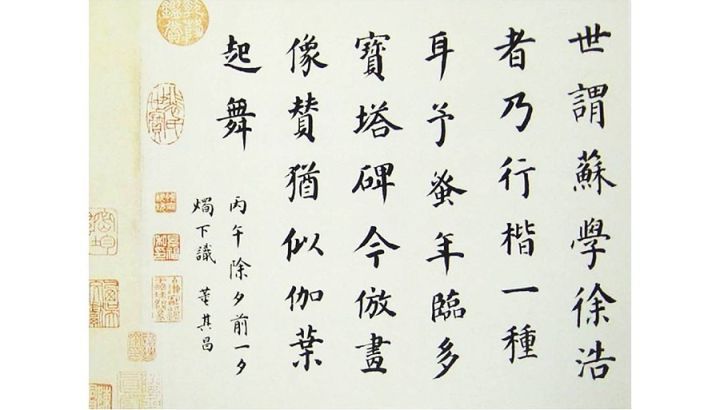 世謂蘇學徐浩
者乃行楷一種
耳予蚤年臨多
寶塔碑今倣畫
像贊猶似伽葉
起舞
丙午除夕前一夕
燭下識 董其昌